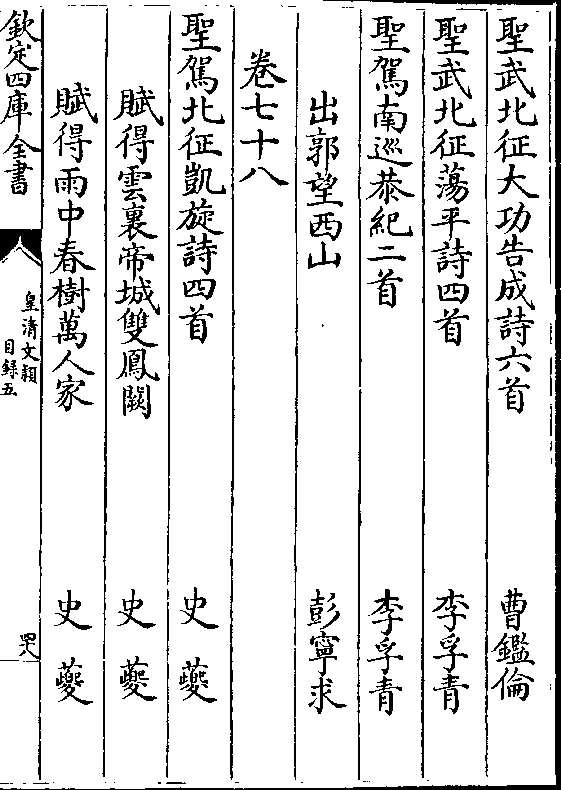 聖武北征大功告成詩六首 曹鑑倫
聖武北征蕩平詩四首 李孚青
聖駕南巡恭紀二首 李孚青
出郭望西山 彭寧求
卷七十八
聖駕北征凱旋詩四首 史夔
賦得雲裏帝城雙鳳闕 史夔
賦得雨中春樹萬人家 史夔
欽定四庫全書
皇清文穎
目録五
四八